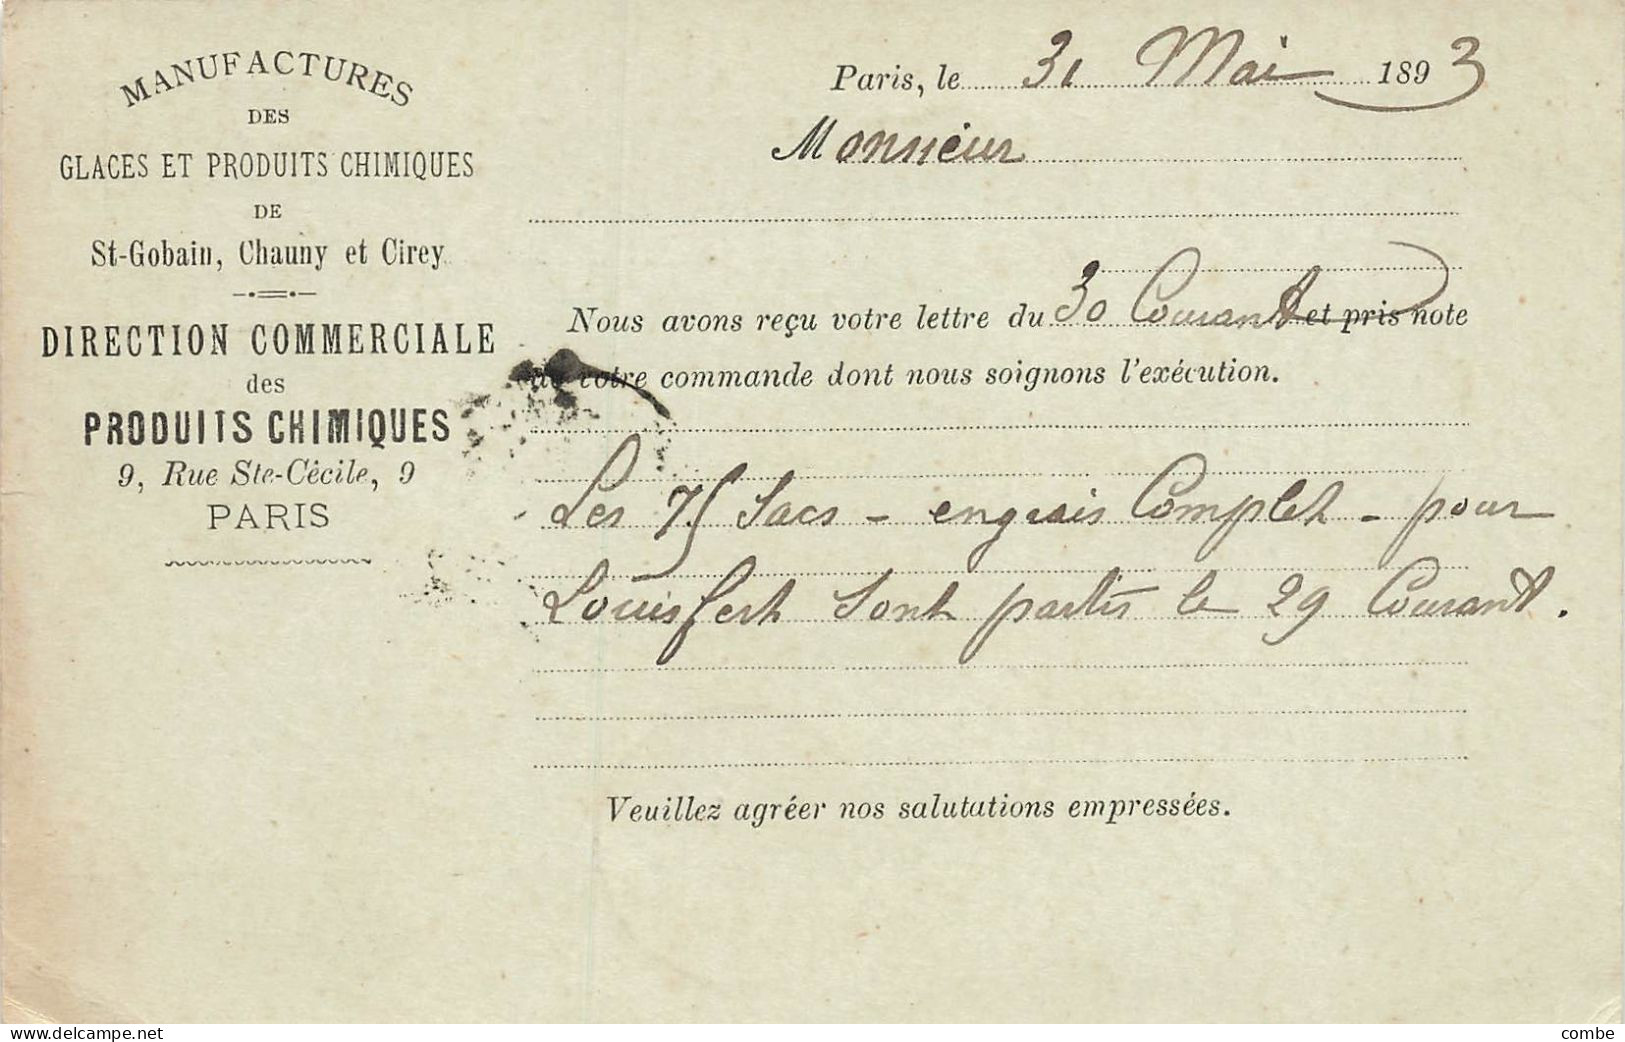 MANUFACTURES
DES
GLACES ET PRODUITS CHIMIQUES
DE
St-Gobain, Chauny et Cirey
DIRECTION COMMERCIALE
des
PRODUITS CHIMIQUES
9, Rue Ste-Cécile, 9
PARIS
Paris, le 31 Mai 1893
Monsieur
Nous avons reçu votre lettre du 30 Courant et pris note
de votre commande dont nous soignons l'exécution.
Les 75 Sacs - engrais Complet - pour
Louisfert sont partis le 29 Courant.
Veuillez agréer nos salutations empressées.
www.delcampe.net
combe